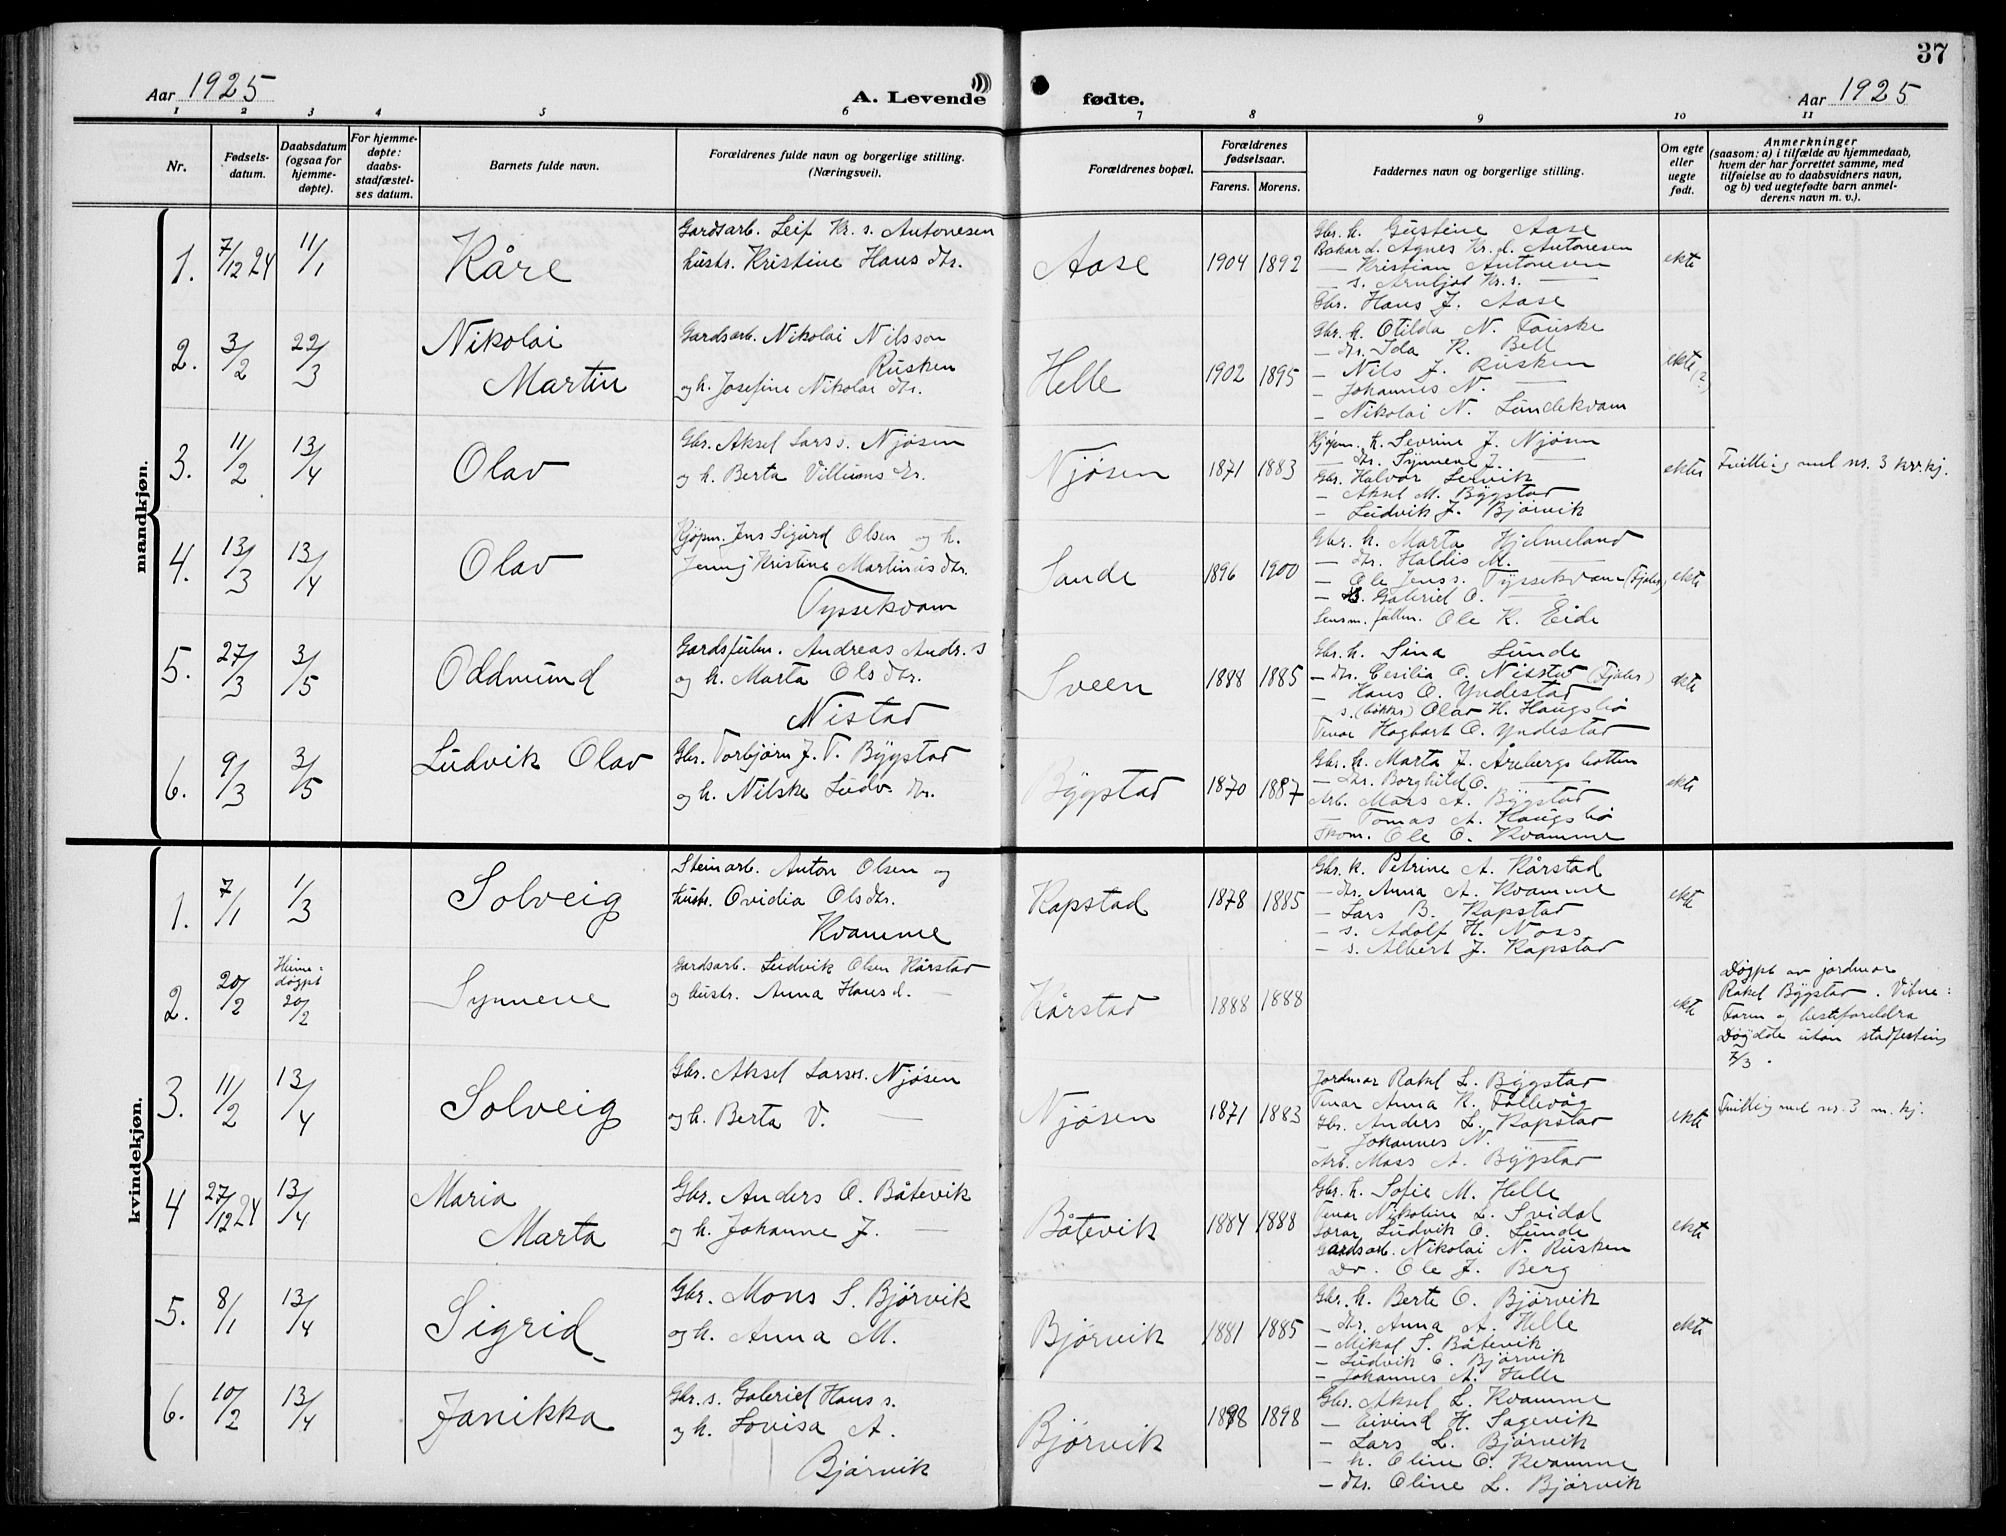 37
Aar 1925
A. Levende fødte.
Aar 1925
1 2 3 4 5 6 7 8 9 10 11
Nr.
Fødsels-
datum.
Daabsdatum
(ogsaa for
hjemme-
døpte).
For hjemme-
døpte:
daabs-
stadfæstel-
ses datum.
Barnets fulde navn.
Forældrenes fulde navn og borgerlige stilling.
(Næringsvei).
Forældrenes bopæl.
Forældrenes
fødselsaar.
Farens. Morens.
Faddernes navn og borgerlige stilling.
Om egte
eller
uegte
født.
Anmerkninger
(saasom: a) i tilfælde av hjemmedaab,
hvem der har forrettet samme, med
tilføielse av to daabsvidners navn,
og b) ved uegtefødte barn anmel-
derens navn m. v.).
mandkjøn.
1. 7/12 24 11/1 Kåre
Gardsarb. Leif Kr. s. Antonesen
hustr. Kristine Hans dtr.
Aase 1904 1892
Gbr. h. Gustine Aase
Bakar d. Agnes Kr. d. Antonesen
— Kristian Antonesen
— s. Arnljot Kr. s. —
Gbr. Hans J. Aase
ekte
2. 3/2 22/3 Nikolai
Martin
Gardsarb. Nikolai Nilsson
Rusken
og h. Josefine Nikolai dtr.
Helle 1902 1895
Gbr. h. Otilda N. Fauske
— dtr. Ida K. Bell
— Nils J. Rusken
— Johannes N. —
— Nikolai N. Lundekvam
ekte (2)
3. 11/2 13/4 Olav
Gbr. Aksel Lars s. Njøsen
og h. Berta Villums dtr.
Njøsen 1871 1883
Kjøpm. h. Sevrine J. Njøsen
— dtr. Synneve J. —
Gbr. Halvor Lervik
— Aksel M. Bygstad
— Ludvik J. Bjørvik
ekte
Tvilling med nr. 3 kv.kj.
4. 13/3 13/4 Olav
Kjøpm. Jens Sigurd Olsen og h.
Jenny Kristine Martinus dtr.
Tyssekvam
Sande 1896 1900
Gbr. h. Marta Hjelmeland
— dtr. Haldis M. —
— Ole Jens s. Tyssekvam (Fjaler)
— s. Gabriel O. —
Lensm. fullm. Ole K. Eide
ekte
5. 27/3 3/5 Oddmund
Gardsfulm. Andreas Andr. s
og h. Marta Ols dtr.
Nistad
Sveen 1888 1885
Gbr. h. Sina Lunde
— dtr. Cesilia O. Nistad (Fjaler)
— Hans O. Yndestad
s. (bøkker) Olav H. Haugsbø
Tenar Hagbart O. Yndestad
ekte
6. 9/3 3/5 Ludvik Olav
Gbr. Torbjørn J. T. Bygstad
og h. Nilske Ludv. dtr.
Bygstad 1870 1887
Gbr. h. Marta J. Årebergsbotten
— dtr. Borghild O. —
Arb. Mass A. Bygstad
— Tomas A. Haugsbø
Skom. Ole O. Kvamme
ekte
kvindekjøn.
1. 7/1 1/3 Solveig
Steinarb. Anton Olsen og
hustr. Ovidia Olsdtr.
Kvamme
Rapstad 1878 1885
Gbr. k. Petrine A. Kårstad
— dtr. Anna A. Kvamme
— Lars B. Rapstad
— s. Adolf H. Noss
— s. Albert J. Rapstad
ekte
2. 20/2 Heime-
døypt
20/2 Synneve
Gardsarb. Ludvik Olsen Kårstad
og hustr. Anna Hans d. —
Kårstad 1888 1888 ekte
Døypt av jordmor
Rakel Bygstad. Vitne:
Faren og besteforeldra
Døydde utan stadfesting
7/3.
3. 11/2 13/4 Solveig
Gbr. Aksel Larss. Njøsen
og h. Berta V. —
Njøsen 1871 1883
Jordmor Rakel L. Bygstad
Tenar Anna K. Follevåg
Gbr. Anders L. Rapstad
— Johannes N. —
Arb. Mass A. Bygstad
ekte
Tvilling med nr. 3 m. kj.
4 27/12 24 13/4 Maria
Marta
Gbr. Anders O. Båtevik
og h. Johanne J. —
Båtevik 1884 1888
Gbr. h. Sofie M. Helle
Tenar Nikoline L. Svidal
Lærar Ludvik O. Lunde
Gardsarb. Nikolai N. Rusken
Do. Ole J. Berg
ekte
5. 8/1 13/4 Sigrid
Gbr. Mons S. Bjørvik
og h. Anna M.
Bjørvik 1881 1885
Gbr. h. Berte O. Bjørvik
— dtr. Anna A. Helle
— Mikal S. Båtevik
— Ludvik O. Bjørvik
— Johannes A. Helle
ekte
6. 10/2 13/4 Janikka
Gbr. s. Gabriel Hans s.
og h. Lovisa A.
Bjørvik
Bjørvik 1898 1898
Gbr. Aksel L. Kvamme
— Eivind H. Sagevik
— Lars L. Bjørvik
— h. Oline O. Kvamme
— dtr. Oline L. Bjørvik